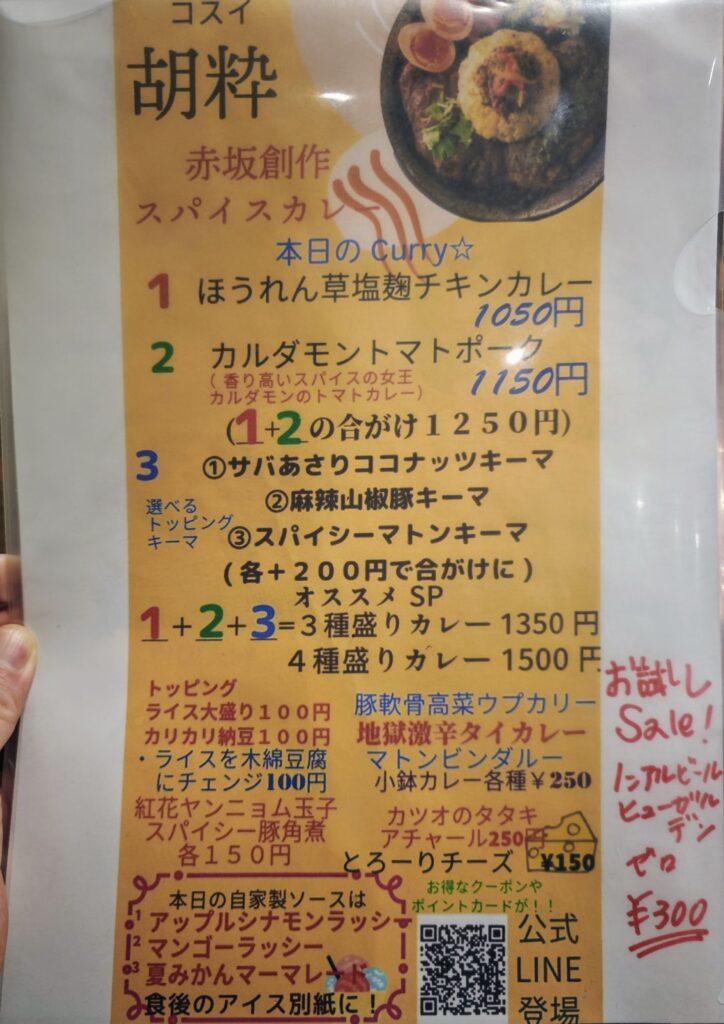 コスイ
胡粋
赤坂創作
スパイスカレー
本日の Curry☆
1 ほうれん草塩麹チキンカレー
1050円
2 カルダモントマトポーク
(香り高いスパイスの女王
カルダモンのトマトカレー)
1150円
(1+2の合がけ１２５０円)
3 ①サバあさりココナッツキーマ
②麻辣山椒豚キーマ
③スパイシーマトンキーマ
選べる
トッピング
キーマ
(各＋２００円で合がけに)
オススメ SP
1+2+3=３種盛りカレー 1350 円
４種盛りカレー 1500 円
トッピング
ライス大盛り１００円
カリカリ納豆１００円
・ライスを木綿豆腐
にチェンジ100円
紅花ヤンニョム玉子
スパイシー豚角煮
各１５０円
豚軟骨高菜ウプカリー
地獄激辛タイカレー
マトンビンダルー
小鉢カレー各種￥250
カツオのタタキ
アチャール250円
とろーりチーズ ¥150
本日の自家製ソースは
1 アップルシナモンラッシー
2 マンゴーラッシー
3 夏みかんマーマレード
食後のアイス別紙に！
お得なクーポンや
ポイントカードが！！
公式
LINE
登場
お試し
Sale!
ノンアルビール
ヒューガル
デン
ゼロ
¥300